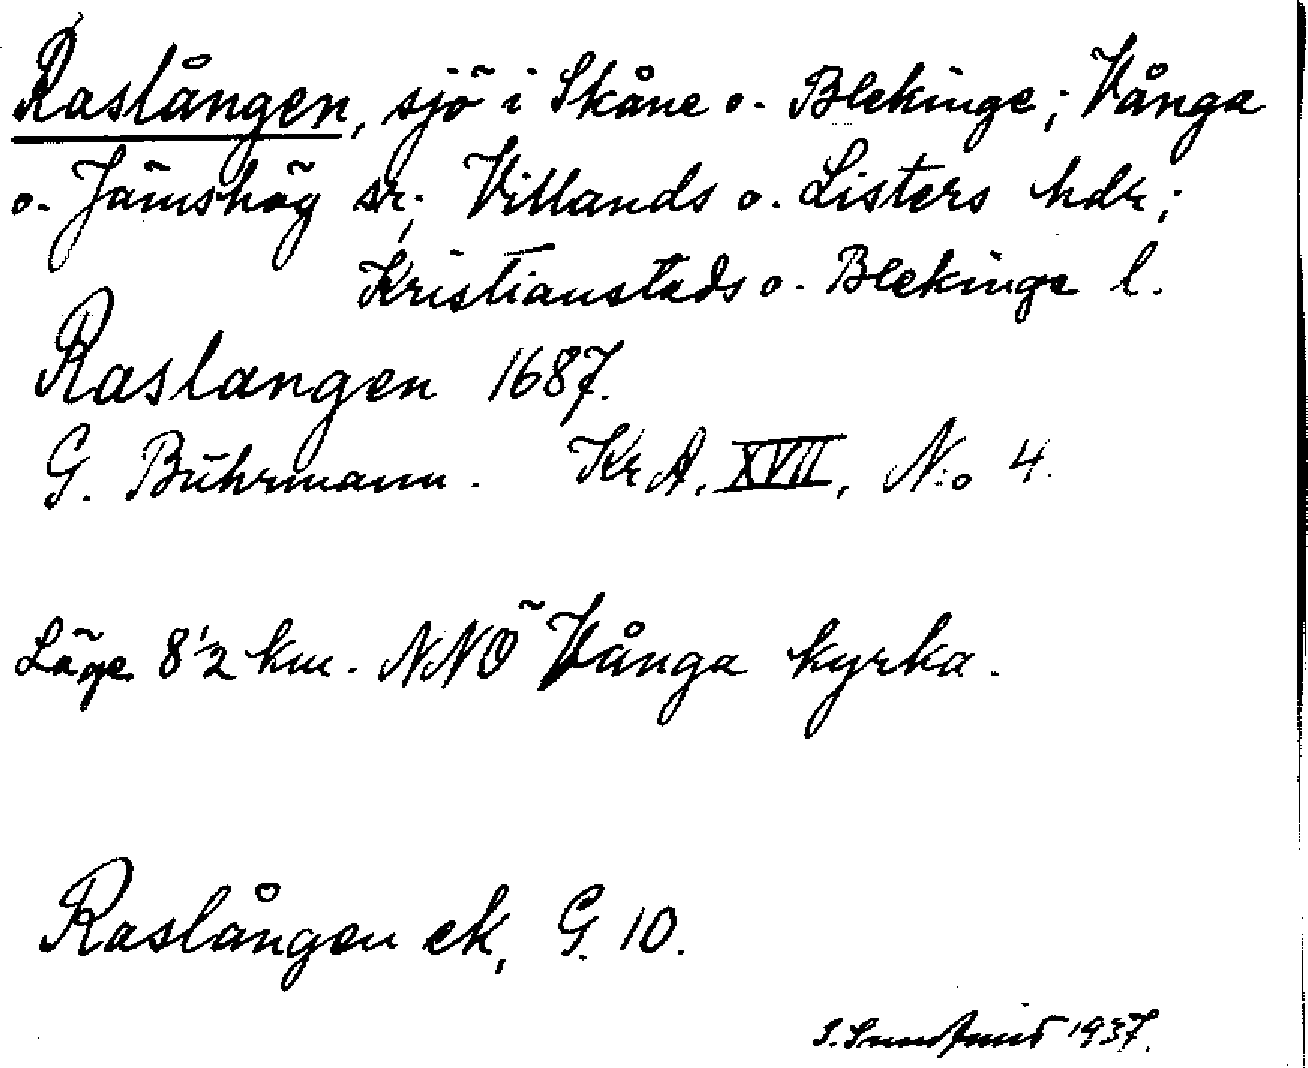 Raslången, sjö i Skåne o. Blekinge; Vånga
o. Jämshög sr; Villands o. Listers hdr;
Kristianstads o. Blekinge l.
Raslangen 1687.
G. Buhrmann. Kr A, XVII, No 4.
Läge 8 1/2 km. NNÖ Vånga kyrka.
Raslången ek, G. 10.
1937.